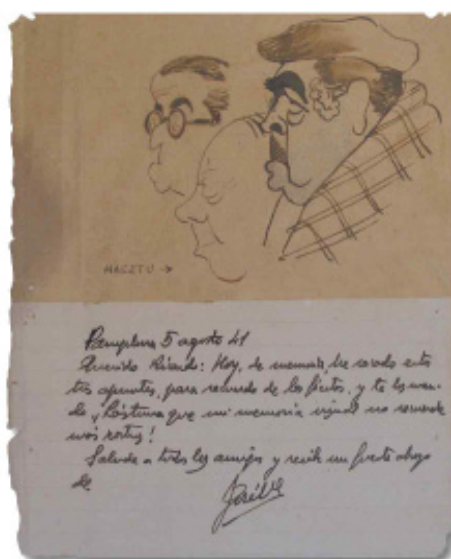 MAEZTU →
Pamplona 5 agosto 41
Querido Ricardo: Hoy, de memoria, he sacado estos
tres apuntes, para recuerdo de las fiestas, y te los man-
do ¡Lástima que mi memoria visual no recuerde
más rostros!
Saludo a todos los amigos y recibe un fuerte abrazo
de